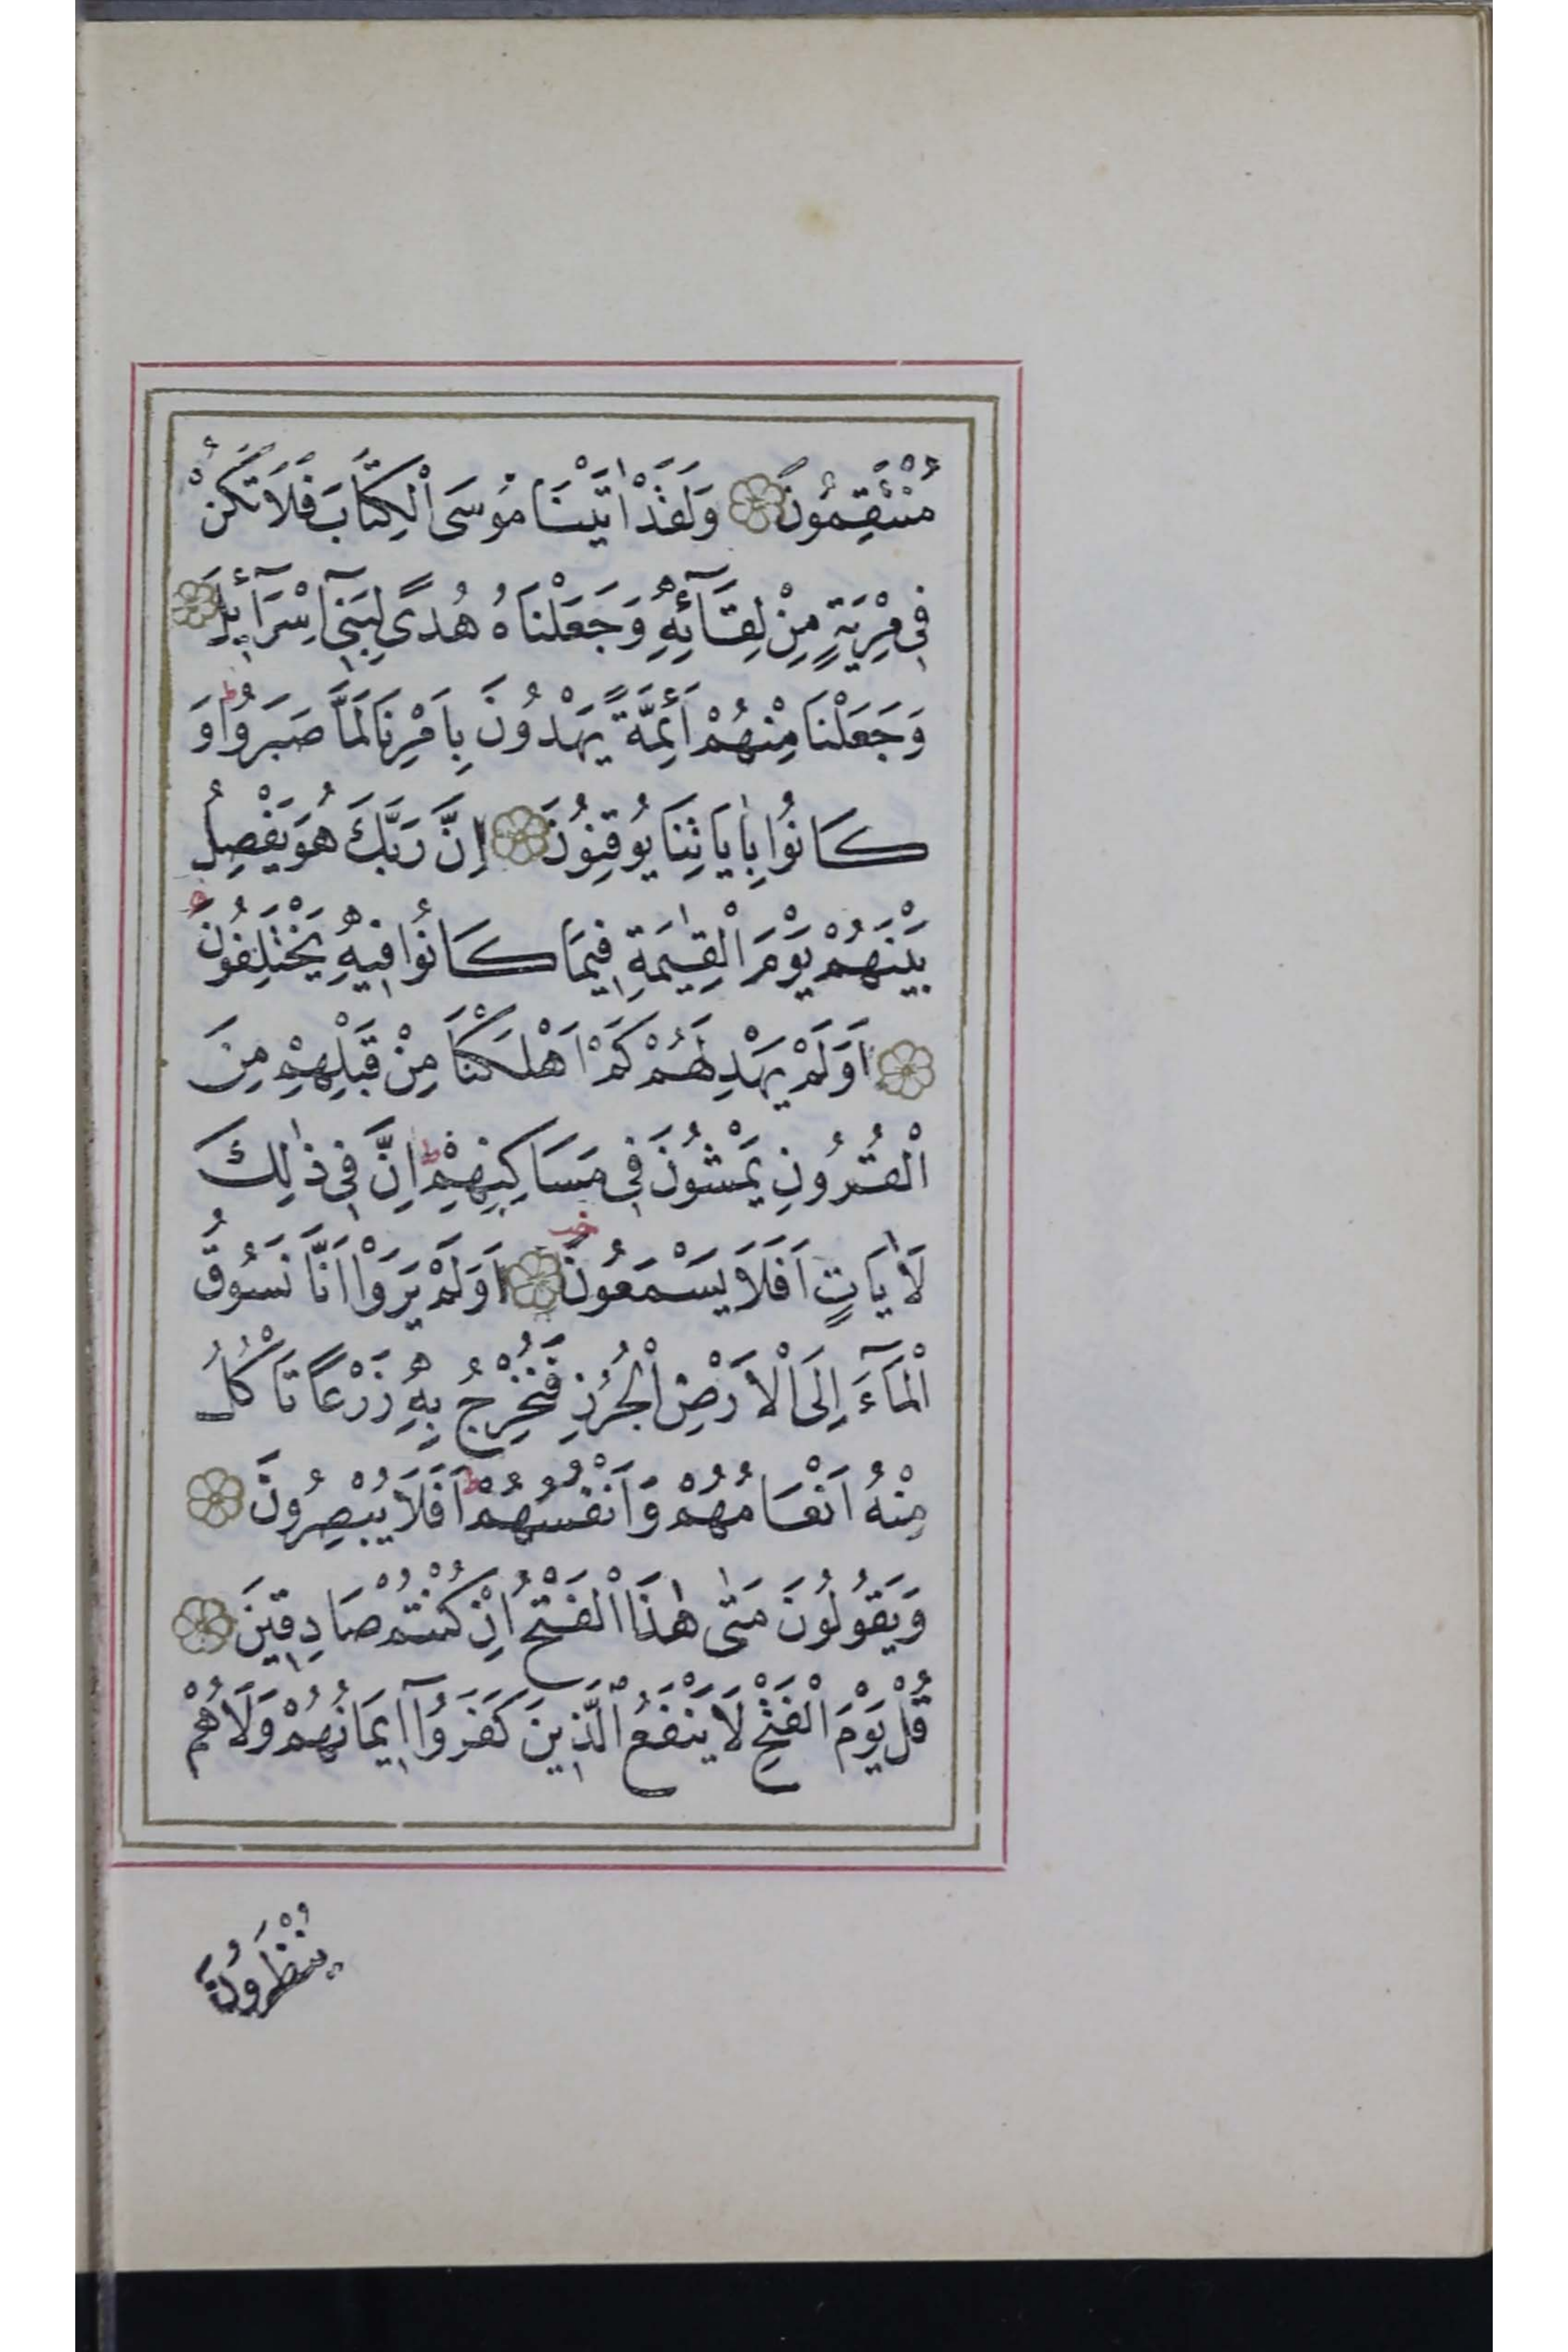 مُنْتَقِمُونَ ۝ وَلَقَدْ اٰتَيْنَا مُوسَى الْكِتَابَ فَلَا تَكُنْ
فِي مِرْيَةٍ مِنْ لِقَآئِهِ وَجَعَلْنَاهُ هُدًى لِبَنِيٓ اِسْرَآئِلَ ۝
وَجَعَلْنَا مِنْهُمْ اَئِمَّةً يَهْدُونَ بِاَمْرِنَا لَمَّا صَبَرُوا ط وَ
كَانُوا بِاٰيَاتِنَا يُوقِنُونَ ۝ اِنَّ رَبَّكَ هُوَ يَفْصِلُ
بَيْنَهُمْ يَوْمَ الْقِيٰمَةِ فِيمَا كَانُوا فِيهِ يَخْتَلِفُونَ
۝ اَوَلَمْ يَهْدِ لَهُمْ كَمْ اَهْلَكْنَا مِنْ قَبْلِهِمْ مِنَ
الْقُرُونِ يَمْشُونَ فِي مَسَاكِنِهِمْ ط اِنَّ فِي ذٰلِكَ
لَاٰيَاتٍ اَفَلَا يَسْمَعُونَ ۝ اَوَلَمْ يَرَوْا اَنَّا نَسُوقُ
الْمَآءَ اِلَى الْاَرْضِ الْجُرُزِ فَنُخْرِجُ بِهِ زَرْعًا تَاْكُلُ
مِنْهُ اَنْعَامُهُمْ وَاَنْفُسُهُمْ ط اَفَلَا يُبْصِرُونَ ۝
وَيَقُولُونَ مَتٰى هٰذَا الْفَتْحُ اِنْ كُنْتُمْ صَادِقِينَ ۝
قُلْ يَوْمَ الْفَتْحِ لَا يَنْفَعُ الَّذِينَ كَفَرُوٓا اِيمَانُهُمْ وَلَا هُمْ
يُنْظَرُونَ